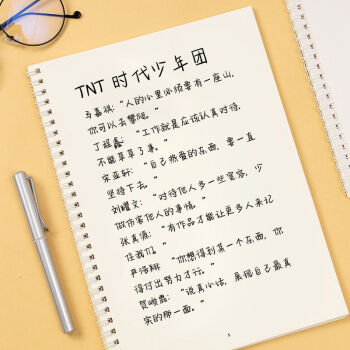 TNT 时代少年团
马嘉祺:“人的心里必须要有一座山,
你可以去攀爬。”
丁程鑫:“工作就是应该认真对待,
不能草草了事。”
宋亚轩:“自己热爱的东西,要一直
坚持下去。”
刘耀文:“对待他人多一些宽容,少
做伤害他人的事情。”
张真源:“有作品才能让更多人来记
住我们。”
严浩翔:“你想得到某一个东西,你
得付出努力才行。”
贺峻霖:“说真心话,展现自己最真
实的那一面。”